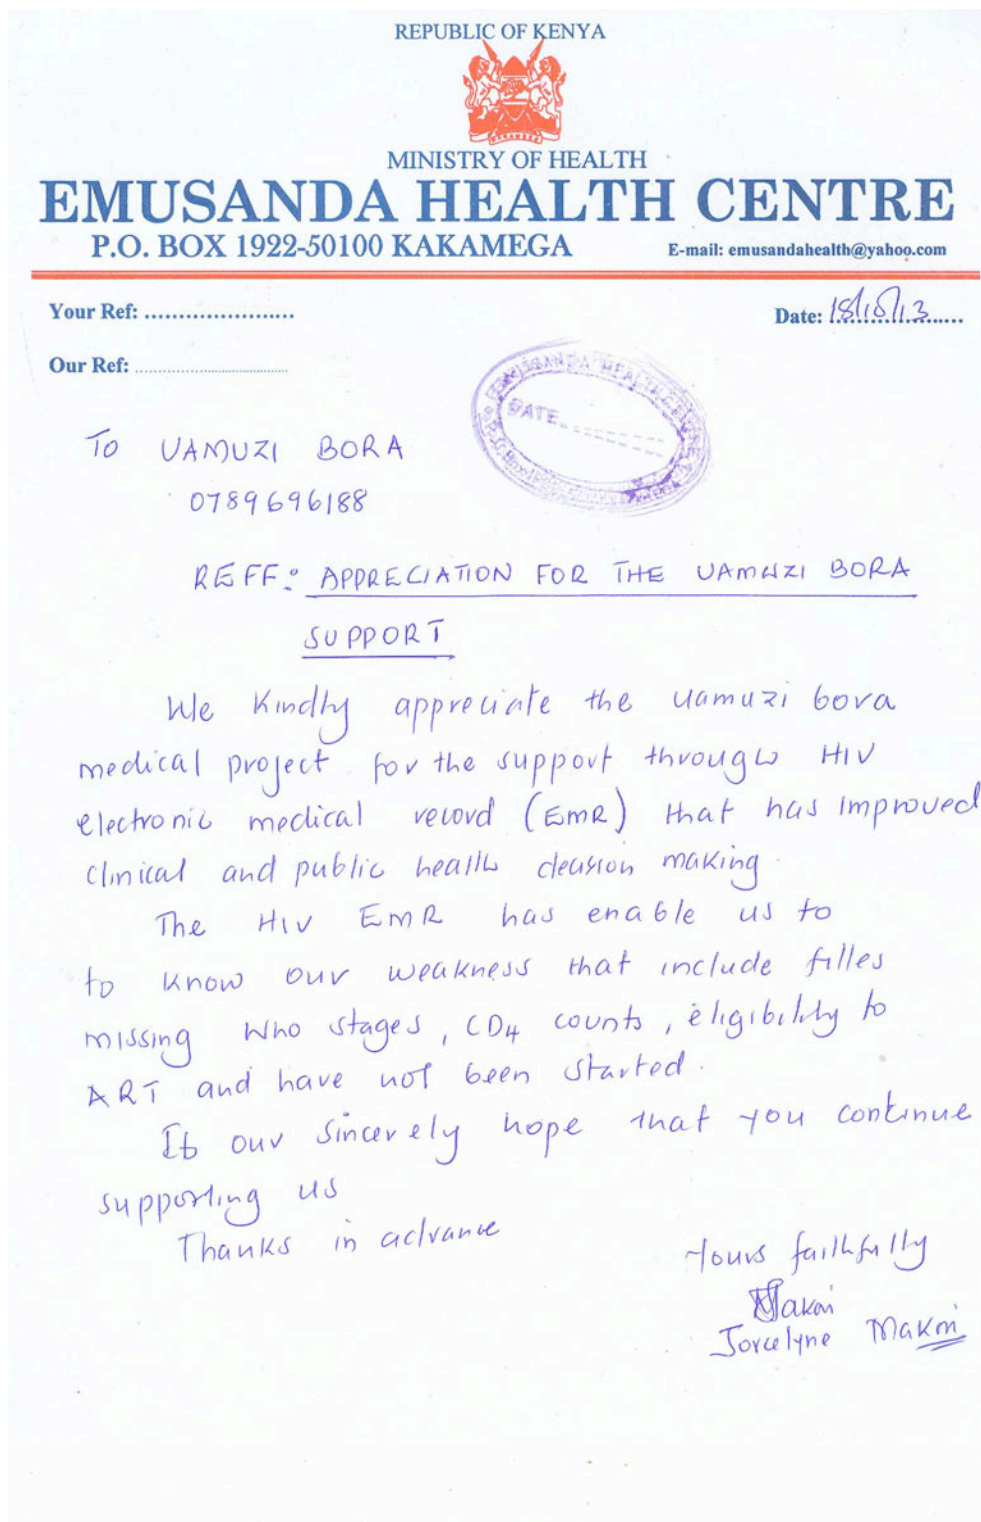 REPUBLIC OF KENYA
MINISTRY OF HEALTH
EMUSANDA HEALTH CENTRE
P.O. BOX 1922-50100 KAKAMEGA
E-mail: emusandahealth@yahoo.com
Your Ref: ......................
Date: 18/10/13
Our Ref: ......................
EMUSANDA HEALTH
DATE
TO UAMUZI BORA
0789696188
REFF: APPRECIATION FOR THE UAMUZI BORA
SUPPORT
We kindly appreciate the uamuzi bora
medical project for the support through HIV
electronic medical record (EMR) that has improved
clinical and public health decision making.
The HIV EMR has enable us to
to know our weakness that include filles
missing Who stages, CD4 counts, eligibility to
ART and have not been started.
It our sincerely hope that you continue
supporting us
Thanks in advance
Yours faithfully
Jorcelyne